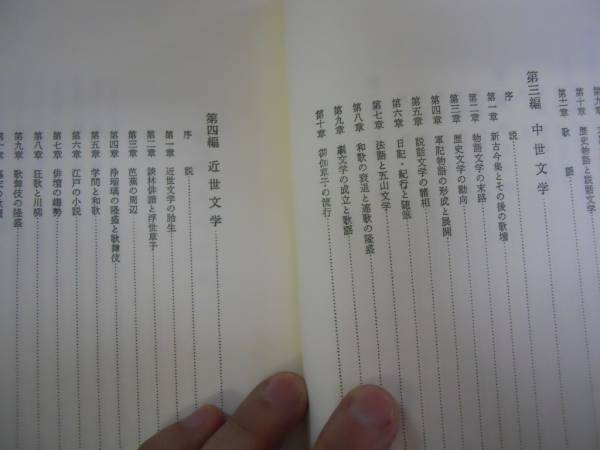 第十章 歴史物語と説話文学
第十一章 歌謡
第三編 中世文学
序説
第一章 新古今集とその後の歌壇
第二章 物語文学の末路
第三章 歴史文学の動向
第四章 軍記物語の形成と展開
第五章 説話文学の諸相
第六章 日記・紀行と随筆
第七章 法語と五山文学
第八章 和歌の衰退と連歌の隆盛
第九章 劇文学の成立と歌謡
第十章 御伽草子の流行
第四編 近世文学
序説
第一章 近世文学の胎生
第二章 談林俳諧と浮世草子
第三章 芭蕉の周辺
第四章 浄瑠璃の隆盛と歌舞伎
第五章 学問と和歌
第六章 江戸の小説
第七章 俳壇の趨勢
第八章 狂歌と川柳
第九章 歌舞伎の隆盛